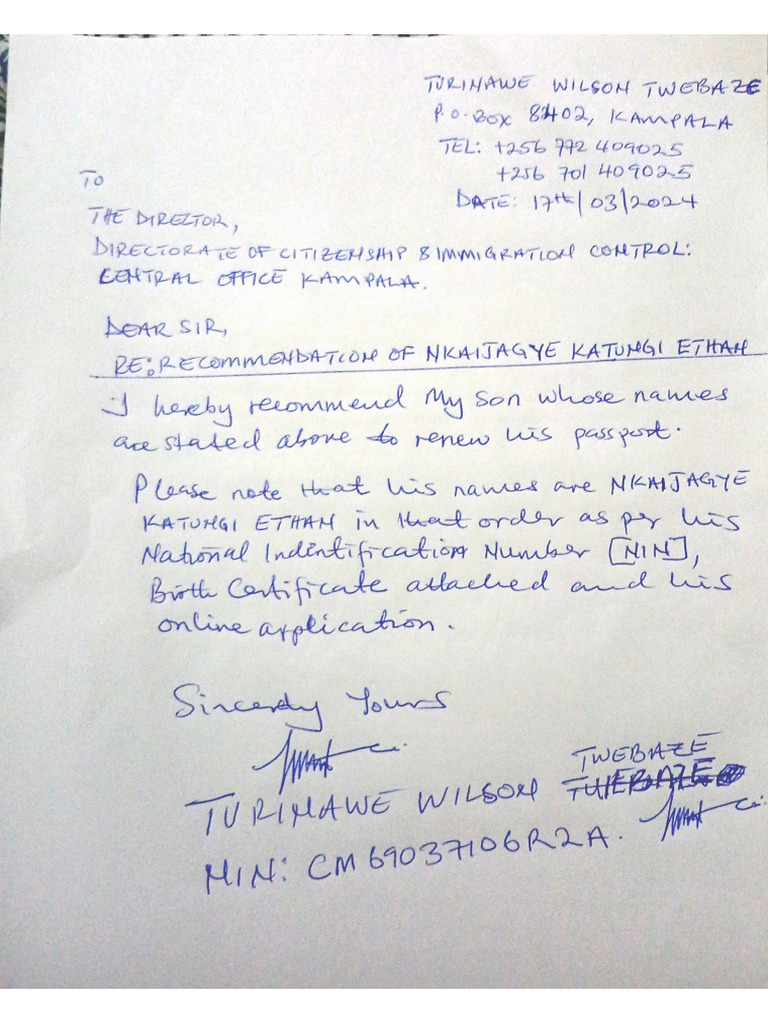 TURINAWE WILSON TWEBAZE
P.O. BOX 8402, KAMPALA
TEL: +256 772 409025
+256 701 409025
DATE: 17th/03/2024
TO
THE DIRECTOR,
DIRECTORATE OF CITIZENSHIP & IMMIGRATION CONTROL:
CENTRAL OFFICE KAMPALA.
DEAR SIR,
RE: RECOMMENDATION OF NKAIJAGYE KATUNGI ETHAN
I hereby recommend My Son whose names
are stated above to renew his passport.
Please note that his names are NKAIJAGYE
KATUNGI ETHAN in that order as per his
National Indintification Number [NIN],
Birth Certificate attached and his
online application.
Sincerely Yours
TWEBAZE
TURINAWE WILSON TWEBAZE
NIN: CM69037106R2A.